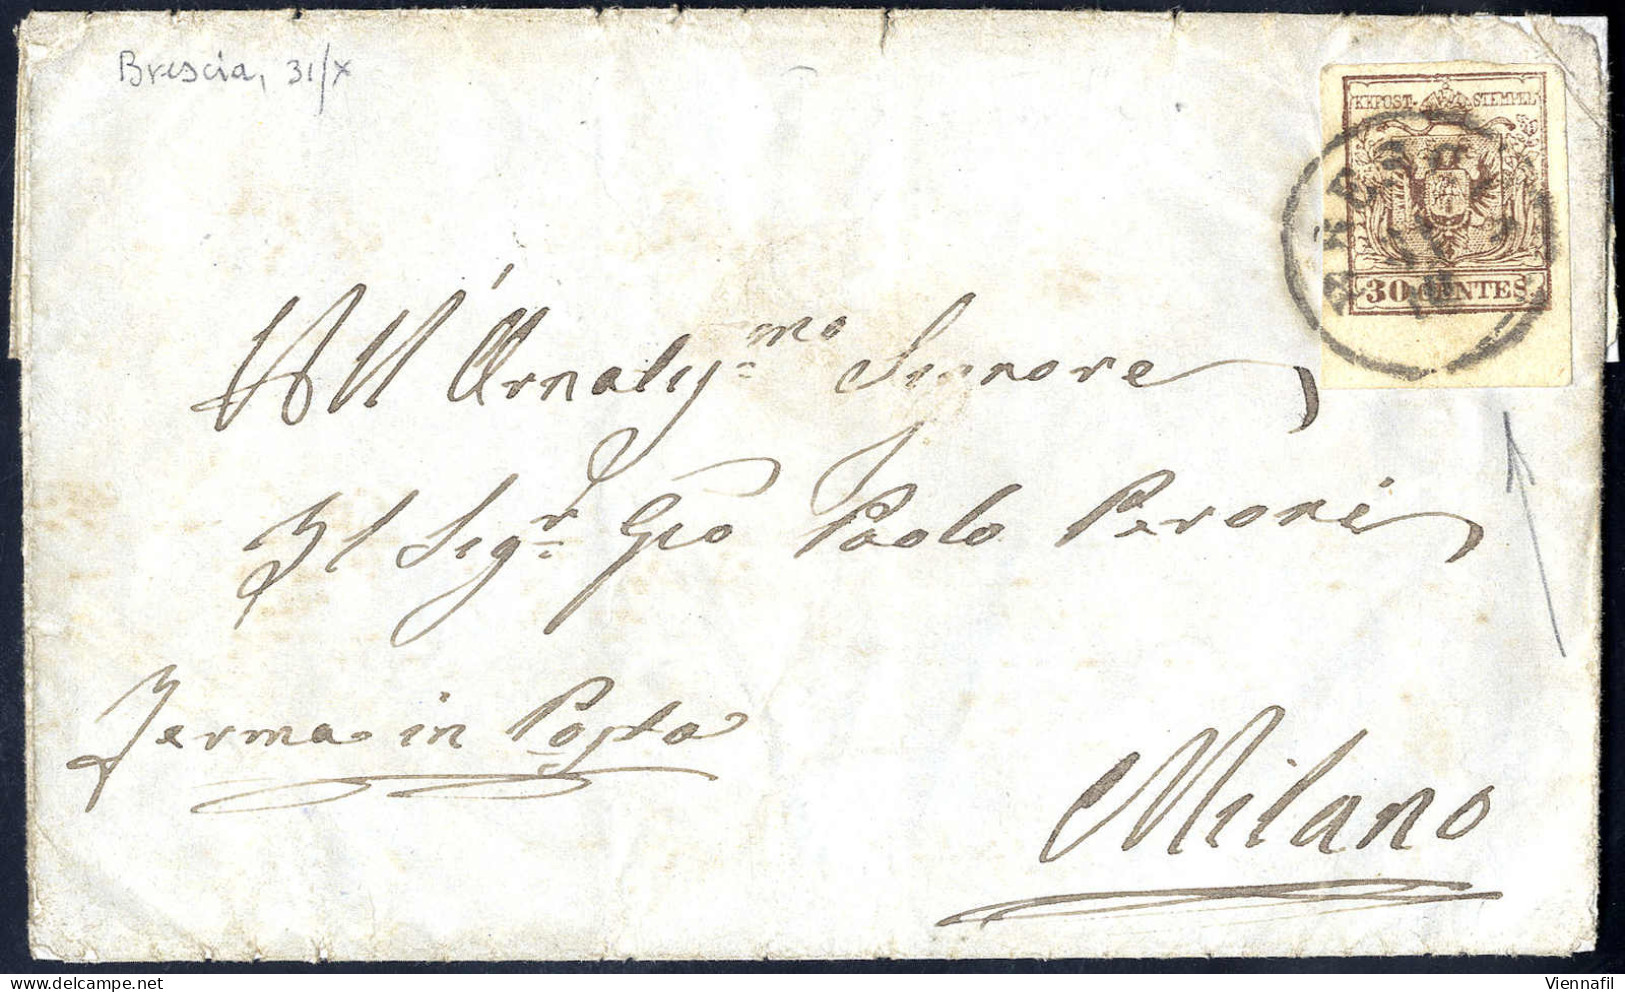 Brescia, 31/X
KKPOST-STEMPEL
30 CENTES
All' Ornatiss.mo Signore
Il Sig.r Gio Paolo Peroni
Ferma in Posta
Milano
Viennafil